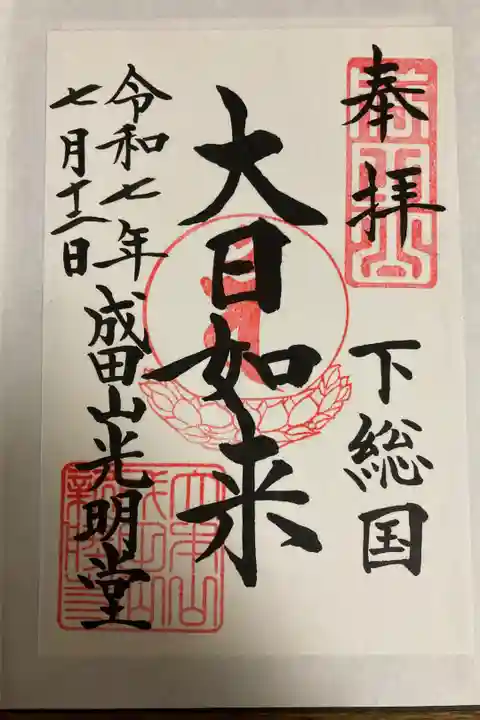 奉拝
下総国
大日如来
令和七年
七月十二日
成田山光明堂